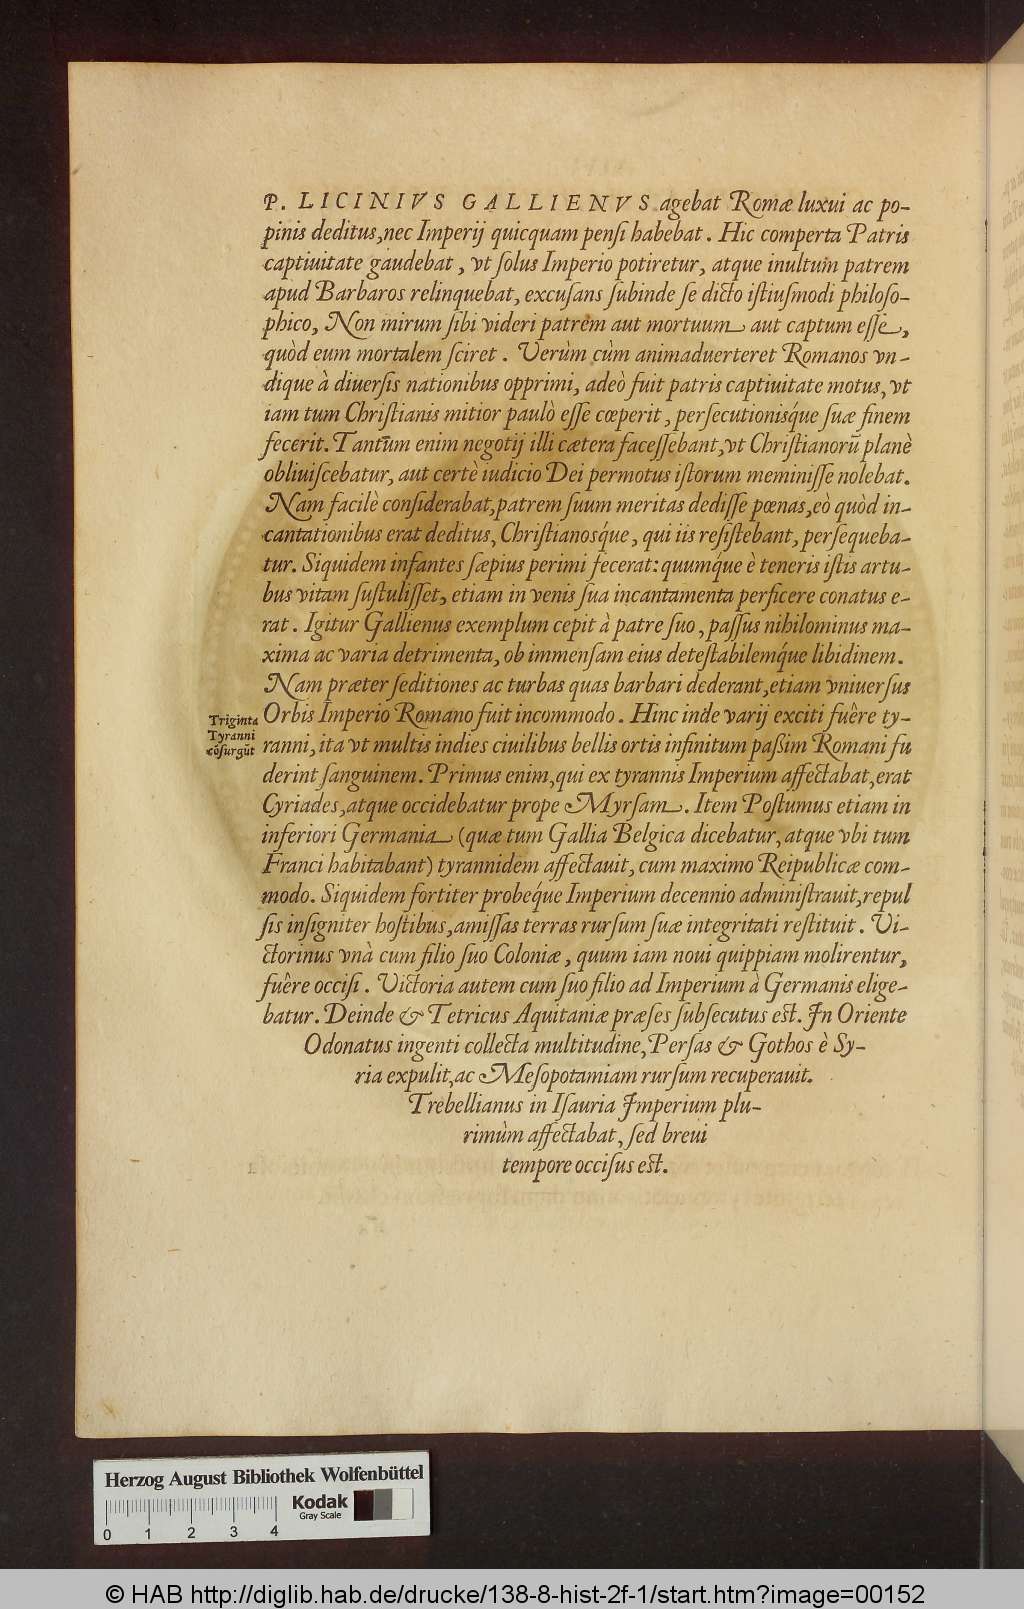 P. LICINIVS GALLIENVS agebat Romæ luxui ac po-
pinis deditus, nec Imperij quicquam pensi habebat. Hic comperta Patris
captiuitate gaudebat, vt solus Imperio potiretur, atque inultum patrem
apud Barbaros relinquebat, excusans subinde se dicto istiusmodi philoso-
phico, Non mirum sibi videri patrem aut mortuum aut captum esse,
quòd eum mortalem sciret. Verùm cùm animaduerteret Romanos vn-
dique à diuersis nationibus opprimi, adeò fuit patris captiuitate motus, vt
iam tum Christianis mitior paulò esse cœperit, persecutionisq́ue suæ finem
fecerit. Tantūm enim negotij illi cætera facessebant, vt Christianorū planè
obliuiscebatur, aut certè iudicio Dei permotus istorum meminisse nolebat.
Nam facilè considerabat, patrem suum meritas dedisse pœnas, eò quòd in-
cantationibus erat deditus, Christianosq́ue, qui iis resistebant, persequeba-
tur. Siquidem infantes sæpius perimi fecerat: quumq́ue è teneris istis artu-
bus vitam sustulisset, etiam in venis sua incantamenta perficere conatus e-
rat. Igitur Gallienus exemplum cepit à patre suo, passus nihilominus ma-
xima ac varia detrimenta, ob immensam eius detestabilemq́ue libidinem.
Nam præter seditiones ac turbas quas barbari dederant, etiam vniuersus
Orbis Imperio Romano fuit incommodo. Hinc inde varij exciti fuêre ty-
Triginta
Tyranni
cōsurgūt
ranni, ita vt multis indies ciuilibus bellis ortis infinitum paßim Romani fu
derint sanguinem. Primus enim, qui ex tyrannis Imperium affectabat, erat
Cyriades, atque occidebatur prope Myrsam. Item Postumus etiam in
inferiori Germania (quæ tum Gallia Belgica dicebatur, atque vbi tum
Franci habitabant) tyrannidem affectauit, cum maximo Reipublicæ com-
modo. Siquidem fortiter probeq́ue Imperium decennio administrauit, repul
sis insigniter hostibus, amissas terras rursum suæ integritati restituit. Vi-
ctorinus vnà cum filio suo Coloniæ, quum iam noui quippiam molirentur,
fuêre occisi. Victoria autem cum suo filio ad Imperium à Germanis elige-
batur. Deinde & Tetricus Aquitaniæ præses subsecutus est. In Oriente
Odonatus ingenti collecta multitudine, Persas & Gothos è Sy-
ria expulit, ac Mesopotamiam rursum recuperauit.
Trebellianus in Isauria Imperium plu-
rimùm affectabat, sed breui
tempore occisus est.
Herzog August Bibliothek Wolfenbüttel
Kodak
Gray Scale
0 1 2 3 4
© HAB http://diglib.hab.de/drucke/138-8-hist-2f-1/start.htm?image=00152